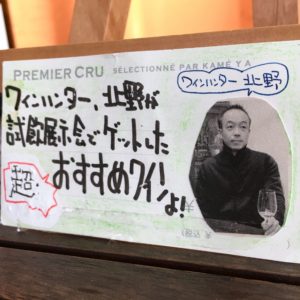 PREMIER CRU SÉLECTIONNÉ PAR KAMÉYA
ワインハンター 北野
ワインハンター、北野が
試飲展示会でゲットした
超・
おすすめワインよ!
(税込)